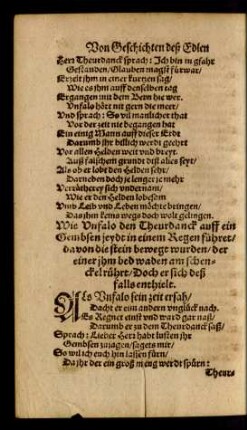 Von Geschichten deß Edlen
Herr Theurdanck sprach: Ich bin in gfahr
Gestanden/ Glauben magst fürwar/
Erzeit ihm in einer kurtzen sag/
Wie es ihm auff denselben tag
Ergangen mit dem Bern hie wer.
Vnfalo hört nit gern die meer/
Vnd sprach: So vil manlicher that
Vor der zeit nie begangen hat
Ein einig Mann auff dieser Erdt
Darumb ihr billich werdt geehrt
Vor allen Helden weit vnd breyt.
Auß falschem grundt diß alles seyt/
Als ob er lobt den Helden sehr/
Darneben doch je lenger je mehr
Verrätherey sich vndernam/
Wie er den Helden lobesam
Vmb Leib vnd Leben möchte bringen/
Das ihm keins wegs doch wolt gelingen.
Wie Vnfalo den Theurdanck auff ein
Gembsen jeydt in einem Regen führet/
da von die stein bewegt wurden/ der
einer jhn bed waden am schen-
ckel rührt/ Doch er sich deß
falls enthielt.
Als Vnfalo sein zeit ersah/
Dacht er eim andern vnglück nach.
Es Regnet einst vnd ward gar naß/
Darumb er zu dem Theurdanck saß/
Sprach: Lieber Herr habt lusten ihr
Gembsen zujagen/ sagets mir/
So wil ich euch hin lassen fürn/
Da jhr der ein groß meng werdt spürn:
Theur-